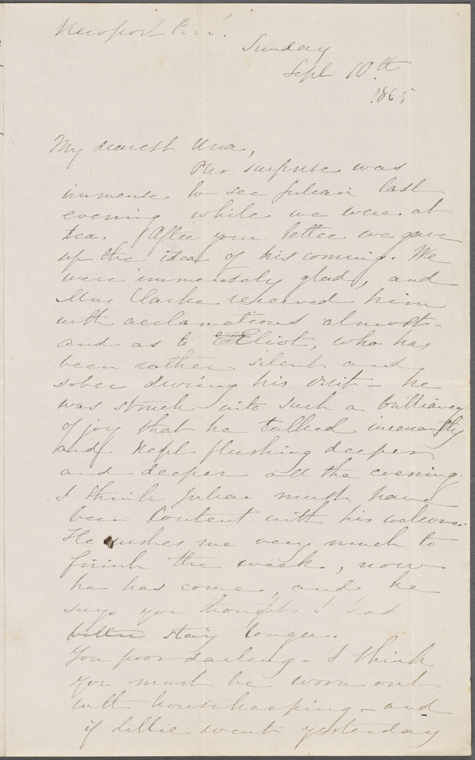 Newport R. I.
Sunday
Sept 10th
1865
My dearest Una,
Our surprise was
immense to see Julian last
evening while we were at
tea. After your letter we gave
up the idea of his coming. We
were immensely glad, and
Miss Clarke received him
with acclamations almost—
and as to Eliot, who has
been rather silent and
sober during his visit— he
was struck into such a brilliancy
of joy that he talked incessantly
and kept flushing deeper
and deeper all the evening.
I think Julian must have
been content with his welcome.
He wishes me very much to
finish the week, now
he has come, and he
says you thought I had
better stay longer.
You poor darling— I think
you must be worn out
with housekeeping— and
if Lillie went yesterday